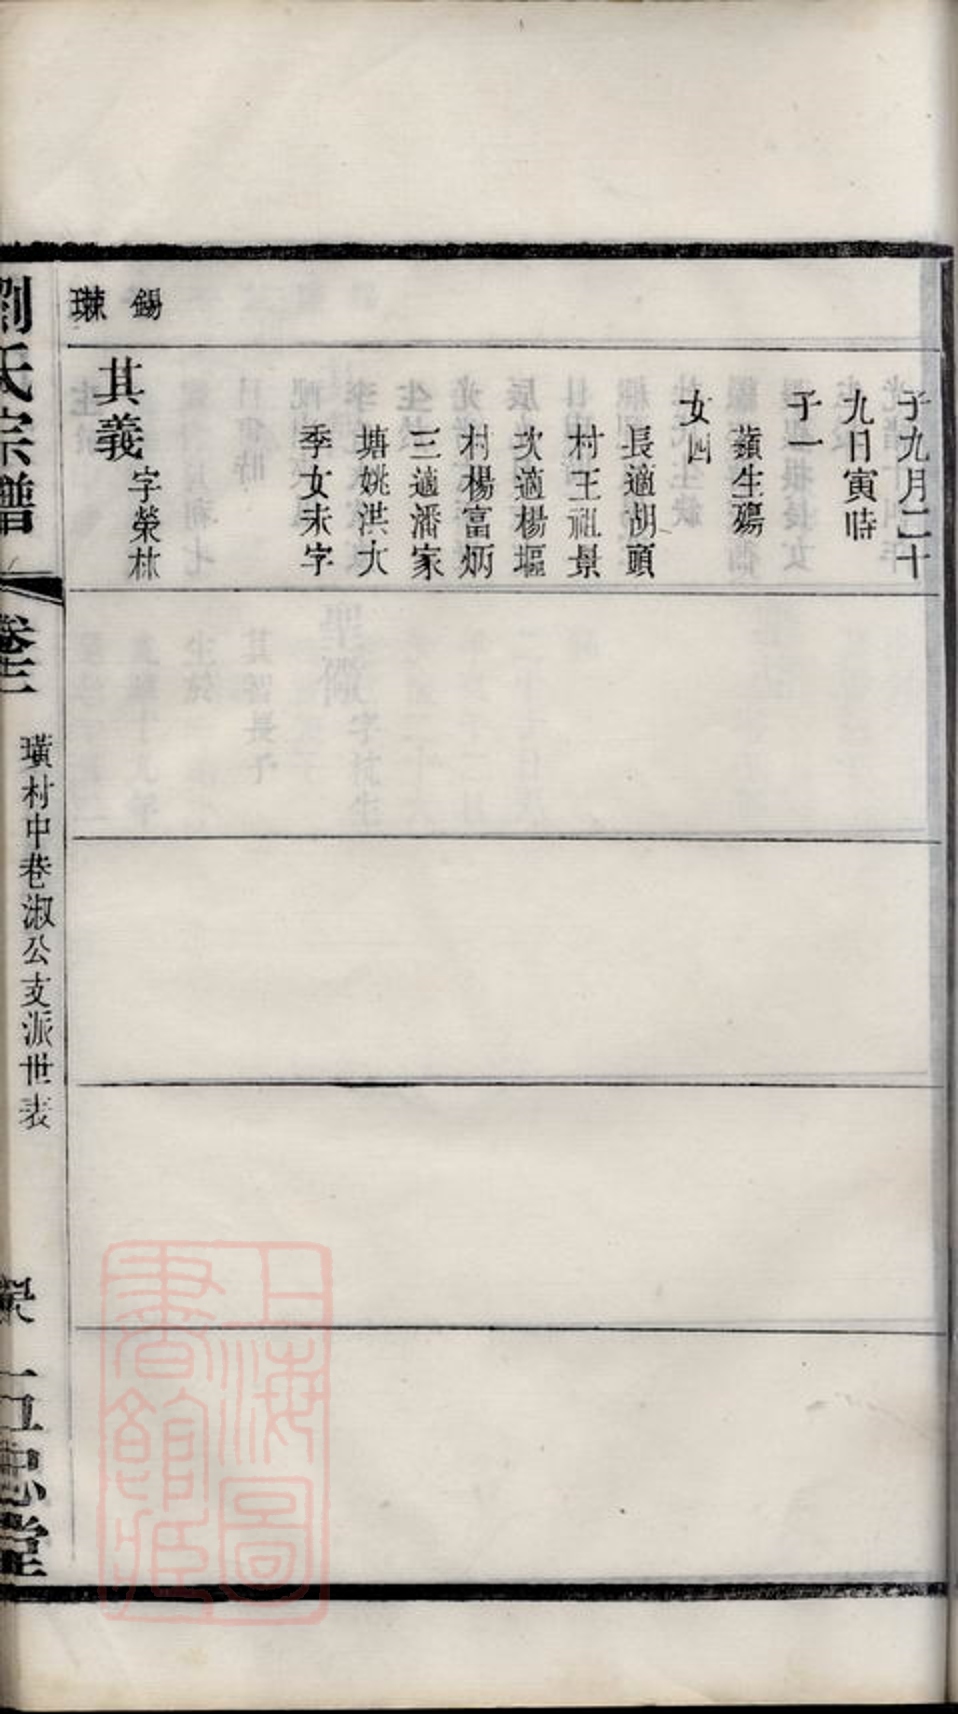 子九月二十
九日寅時
子一
蘋生殤
女四
長適胡頭
村王祖景
次適楊堰
村楊富炳
三適潘家
塘姚洪大
季女未字
錫
其義
字榮林
劉氏宗譜
卷十三
璜村中巷淑公支派世表
五忠堂
上海圖
書館藏